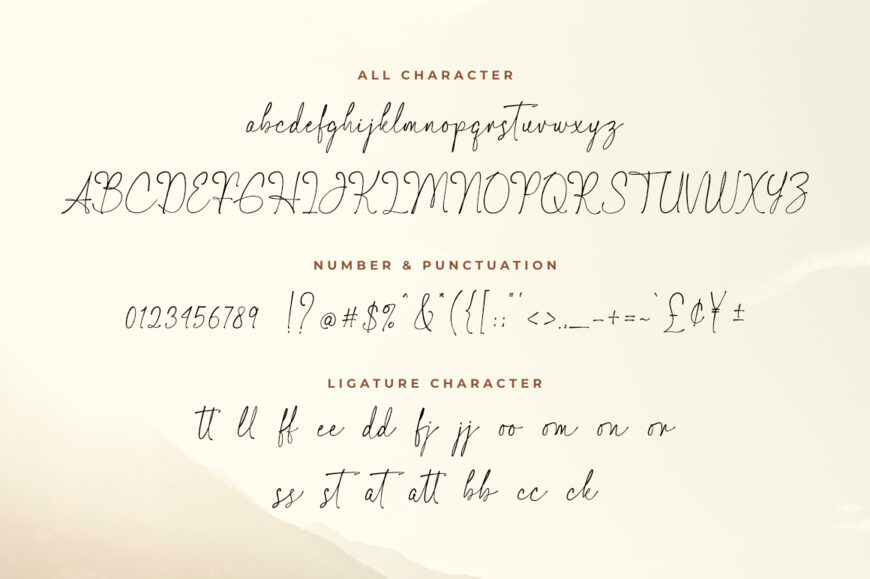 ALL CHARACTER
abcdefghijklmnopqrstuvwxyz
ABCDEFGHIJKLMNOPQRSTUVWXYZ
NUMBER & PUNCTUATION
0123456789 !?@#$%^&*({[:;"'<>.,_-+=~`£¢¥±
LIGATURE CHARACTER
tt ll ff ee dd fj jj oo om on or
ss st at att bb cc ck